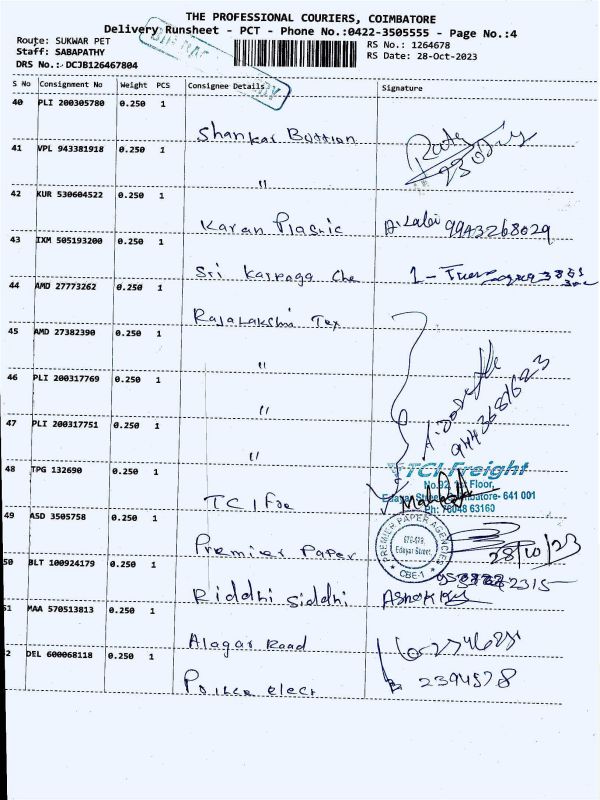 THE PROFESSIONAL COURIERS, COIMBATORE
Delivery Runsheet - PCT - Phone No.:0422-3505555 - Page No.:4
Route: SUKWAR PET
RS No.: 1264678
Staff: SABAPATHY
RS Date: 28-Oct-2023
DRS No.: DCJB126467804
S No Consignment No Weight PCS Consignee Details Signature
40 PLI 200305780 0.250 1
Shankar Buttian
41 VPL 943381918 0.250 1
"
42 KUR 530604522 0.250 1
Karan Plasnic
9943268029
43 IXM 505193200 0.250 1
Sri Karpaga Che
44 AMD 27773262 0.250 1
Rajalakshmi Tex
45 AMD 27382390 0.250 1
"
46 PLI 200317769 0.250 1
"
9443681623
47 PLI 200317751 0.250 1
"
48 TPG 132690 0.250 1
TCI Freight
No.92, 1st Floor,
Street, Coimbatore- 641 001
Ph: 76048 63160
TCI Foe
49 ASD 3505758 0.250 1
PREMIER PAPER AGENCIES
Edayar Street,
CBE-1
Premier Paper
28/10/23
50 BLT 100924179 0.250 1
Riddhi Siddhi
Ashok
51 MAA 570513813 0.250 1
Alagar Road
2 DEL 600068118 0.250 1
2394578
Prince elect